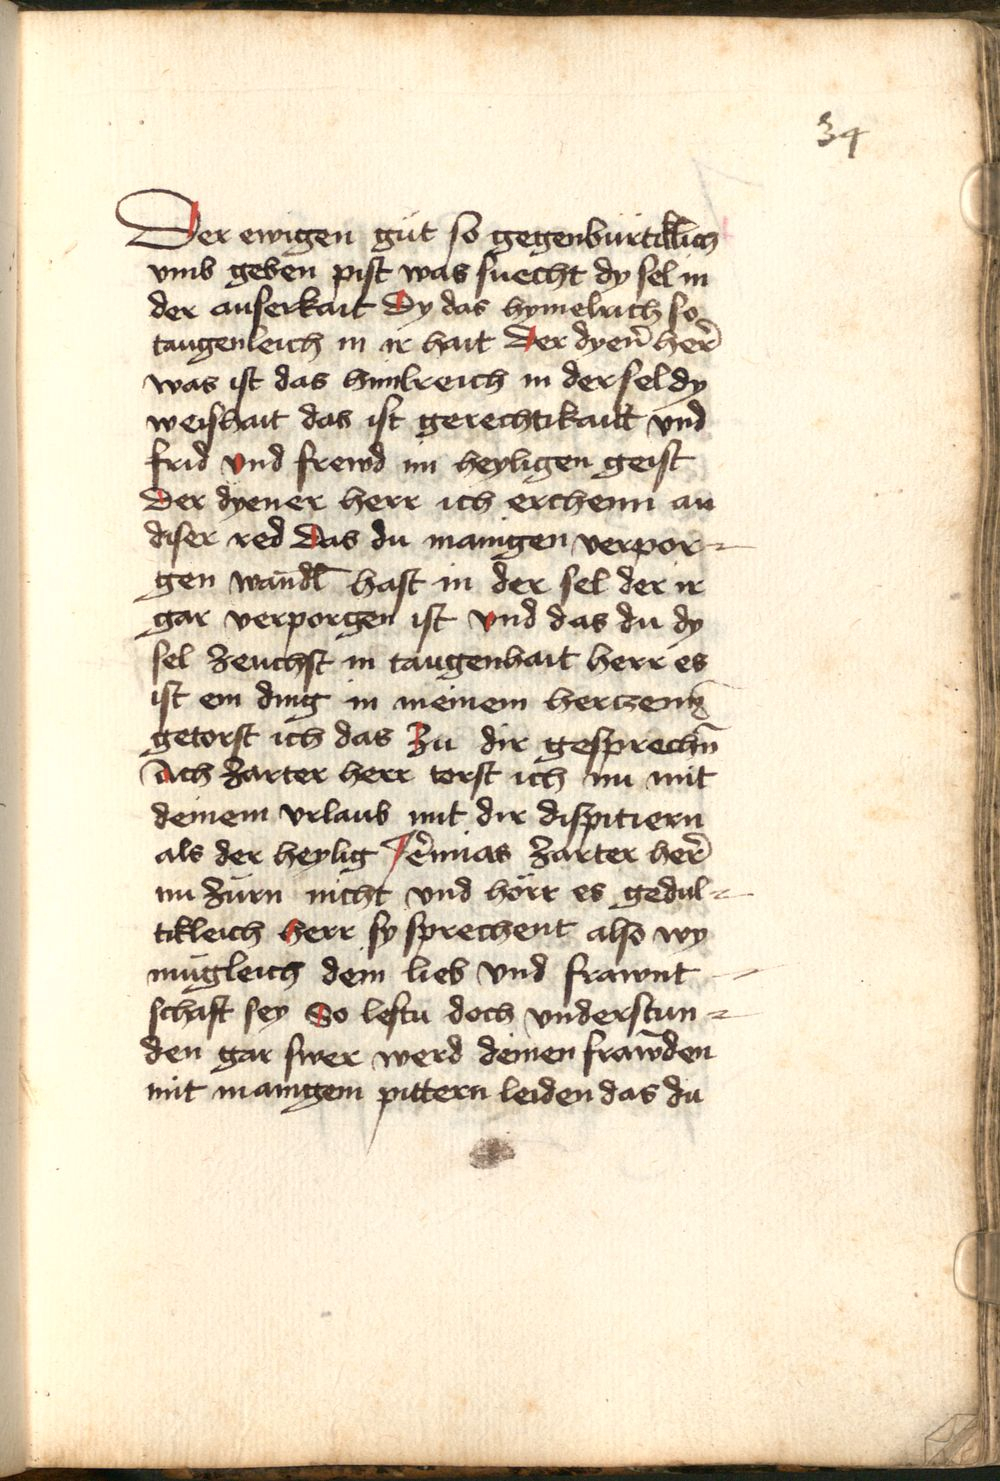 34
Der ewigen güt so gegenbürtikl̄ich
vmb geben pist was suecht dy sel in
der auserkait Dy das hymelrich so
taugenleich in ir hait Der dyen̄ her̄
was ist das himlreich in der sel dy
weishait das ist gerechtikaitt vnd
frid vnd frewd im heyligen geist
Der dyener herr ich erchenn an
diser red Das du manigen verpor=
gen wandl̄ hast in der sel der ir
gar verporgen ist vnd das du dy
sel zeuchst in taugenhait herr es
ist ein ding in meinem hertzenn
getorst ich das Zu dir gesprechn̄
Ach zarter herr torst ich nu mit
deinem vrlaub mit dir dispitiern
als der heylig Jer̄mias zarter her̄
nu zürn nicht vnd hörr es gedul=
tikleich herr sy sprechent also wy
mügleich dein lieb vnd frawnt
schaft sey So lestu doch vnderstun=
den gar swer werd deinen fraw̄den
mit manigem pittern leiden das du